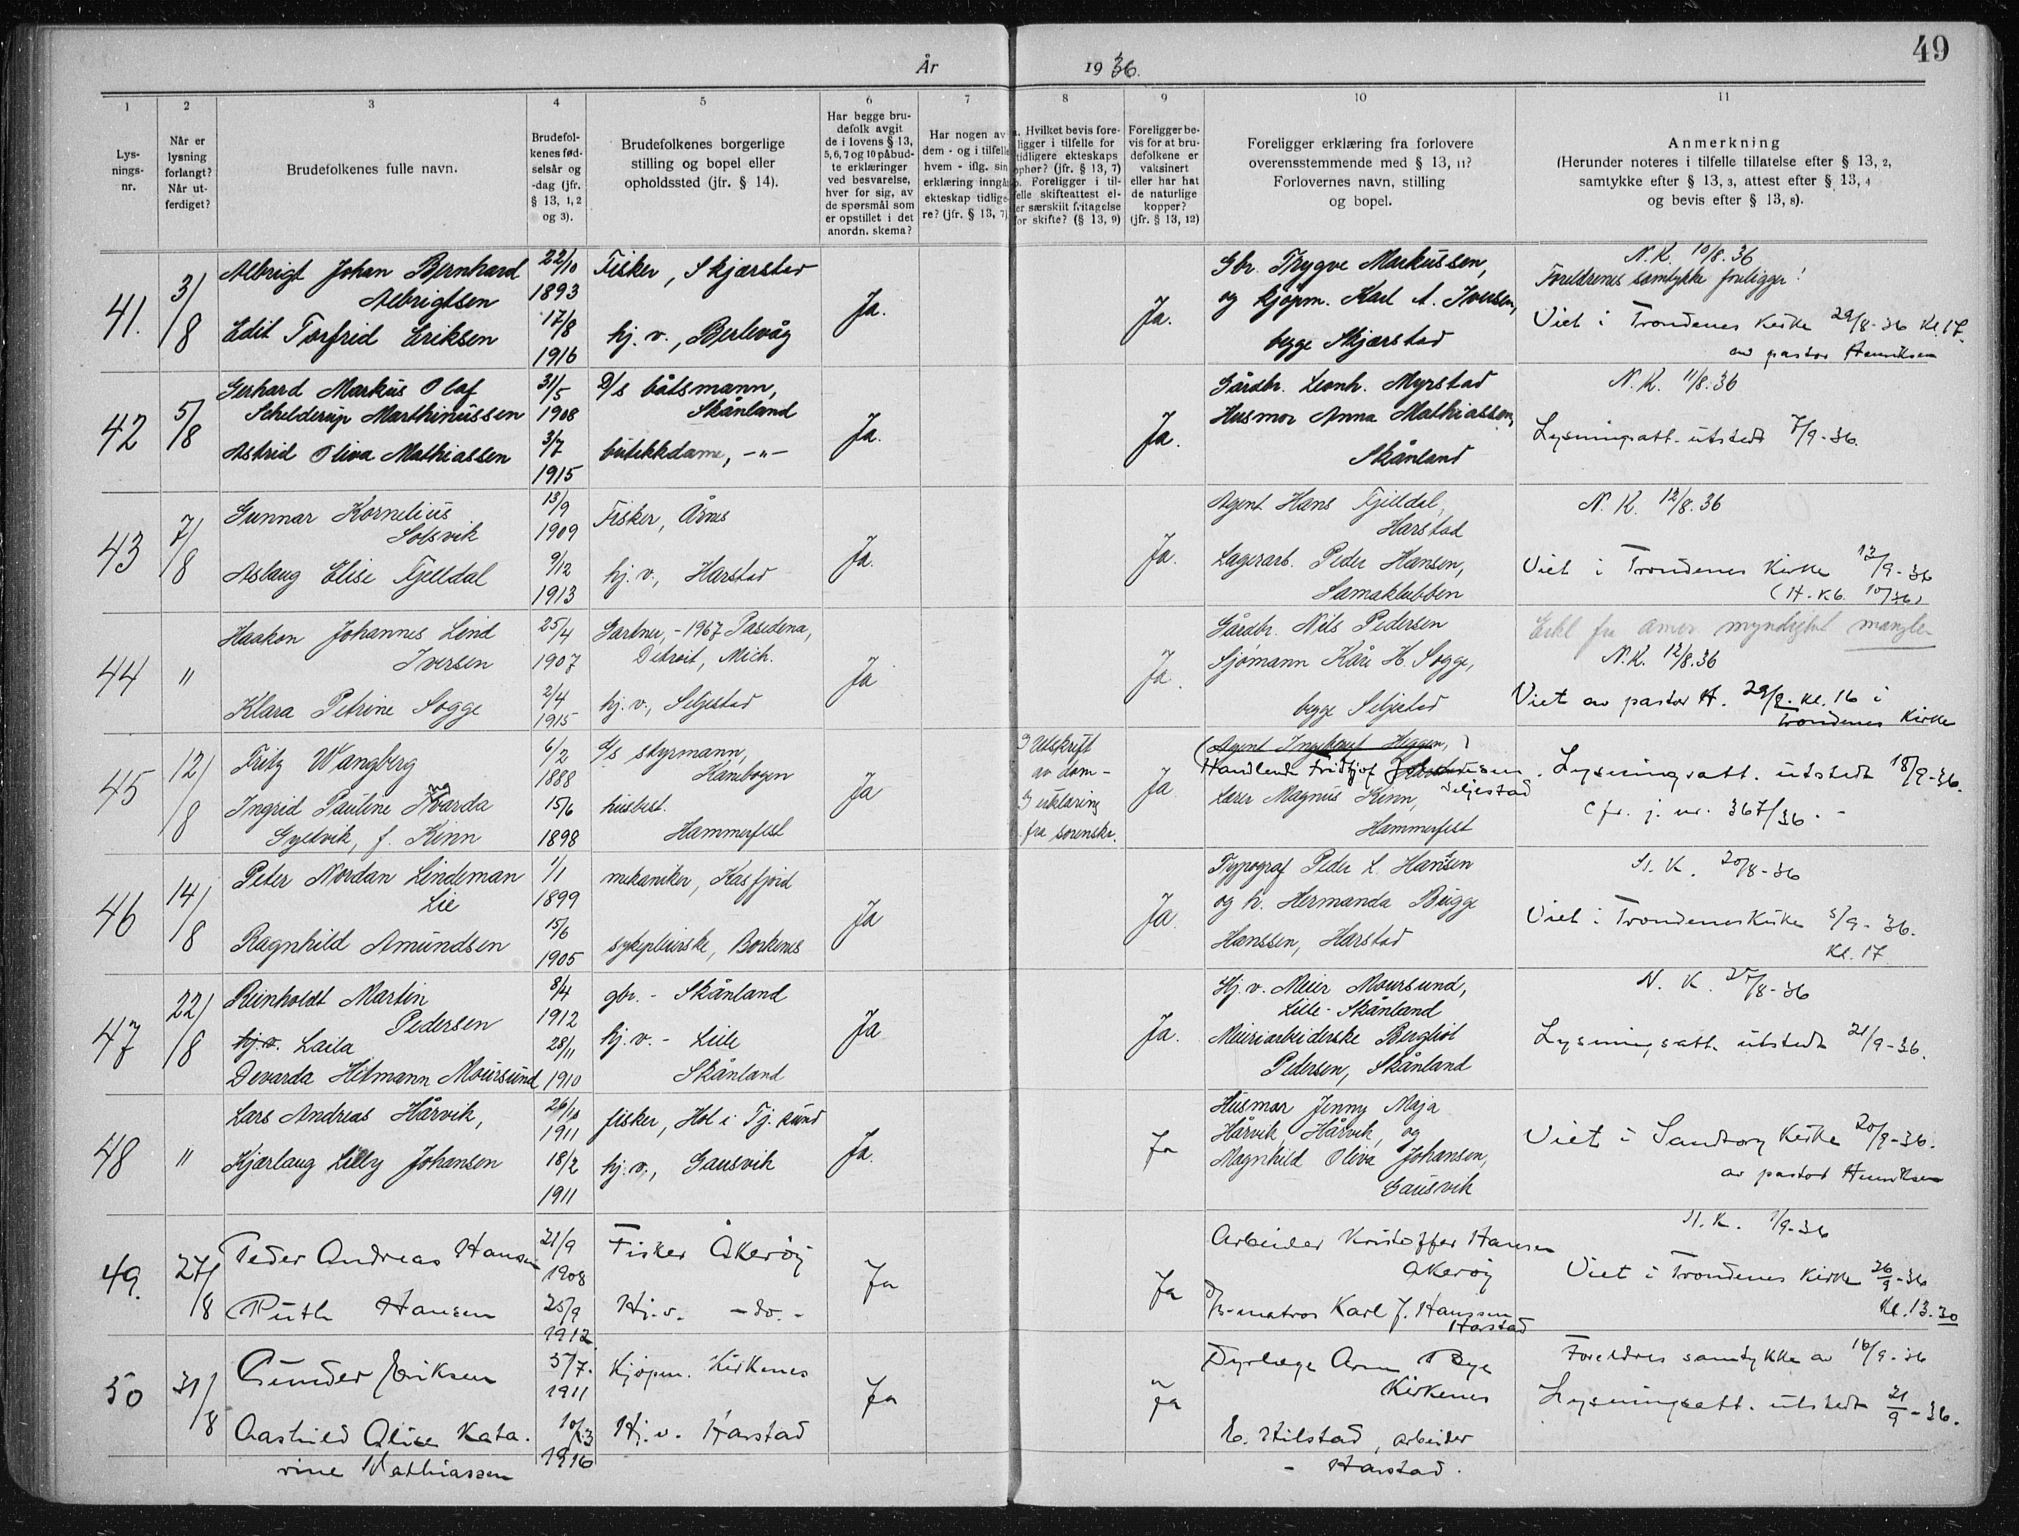 49
År 1936.
1 2 3 4 5 6 7 8 9 10 11
Lys-
nings-
nr.
Når er
lysning
forlangt?
Når ut-
ferdiget?
Brudefolkenes fulle navn.
Brudefol-
kenes fød-
selsår og
-dag (jfr.
§ 13, 1, 2
og 3).
Brudefolkenes borgerlige
stilling og bopel eller
opholdssted (jfr. § 14).
Har begge bru-
defolk avgit
de i lovens § 13,
5, 6, 7 og 10 påbud-
te erklæringer
ved besvarelse,
hver for sig, av
de spørsmål som
er opstillet i det
anordn. skema?
Har nogen av
dem - og i tilfelle
hvem - iflg. sin
erklæring inngåt
ekteskap tidlige-
re? (jfr. § 13, 7)
a. Hvilket bevis fore-
ligger i tilfelle for
tidligere ekteskaps
ophør? (jfr. § 13, 7)
b. Foreligger i til-
felle skifteattest el-
ler særskilt fritagelse
for skifte? (§ 13, 9)
Foreligger be-
vis for at bru-
defolkene er
vaksinert
eller har hat
de naturlige
kopper?
(jfr. § 13, 12)
Foreligger erklæring fra forlovere
overensstemmende med § 13, 11?
Forlovernes navn, stilling
og bopel.
Anmerkning
(Herunder noteres i tilfelle tillatelse efter § 13, 2,
samtykke efter § 13, 3, attest efter § 13, 4
og bevis efter § 13, 8).
41.
3/8
Albrigt Johan Bernhard
Albrigtsen
Edit Torfrid Eriksen
22/10
1893
17/8
1916
Fisker, Skjærstad
hj. v., Berlevåg
Ja.
Ja.
Gbr. Trygve Markussen,
og kjøpm. Karl A. Iversen,
begge Skjærstad
N.K. 10/8.36
Foreldrenes samtykke foreligger!
Viet i Trondenes Kirke 29/8-36 Kl. 17.
av pastor Henriksen
42
5/8
Gerhard Markus Olaf
Schelderup Marthinussen
Astrid Oliva Mathiassen
31/5
1908
3/7
1915
D/s båtsmann,
Skånland
butikkdame, -"-
Ja.
Ja.
Gårdbr. Leonh. Myrstad
Husmor Anna Mathiassen,
Skånland
N.K. 11/8.36
Lysningsatt. utstedt 7/9-36.
43
7/8
Gunnar Kornelius
Solsvik
Aslaug Elise Fjelldal
13/9
1909
9/12
1913
Fisker, Årnes
hj. v., Harstad
Ja.
Ja.
Agent Hans Fjelldal,
Harstad
Lagerarb. Peder Hansen,
Samaklubben
N.K. 12/8.36
Viet i Trondenes Kirke 12/9-36
(H. Kb. 10/36)
44
"
Haakon Johannes Lind
Iversen
Klara Petrine Sogge
25/4
1907
2/4
1915
Gartner, - 1967 Pasedena,
Detroit, Mich.
hj. v., Seljestad
Ja
Ja.
Gårdbr. Nils Pedersen
Sjømann Kåre H. Sogge,
begge Seljestad
Erkl fra amer. myndighet mangler
N.K. 12/8.36
Viet av pastor H. 29/8. kl. 16 i
Trondenes Kirke
45
12/8
Fritz Wangberg
Ingrid Pauline Hvarda
Gyltvik, f. Kinn
6/2
1888
15/6
1898
D/s styrmann,
Kambogen
husbest.
Hammerfest
Ja
Utskrift
av dom -
erklæring
fra sorenskr.
Ja
(Agent Ingebrigt Heggen,)
Handlende Fridtjof
Seljestad
Lærer Magnus Kinn,
Hammerfest
Lysningsatt. utstedt 18/9-36.
Cfr. j. nr. 367/36. -
46
14/8
Peter Nordan Lindeman
Lie
Ragnhild Amundsen
1/1
1899
15/6
1905
mekaniker, Kasfjord
sykepleierske, Borkenes
Ja
Ja.
Typograf Peder L. Hansen
og h. Hermanda Bugge
Hanssen, Harstad
N.K. 20/8-36
Viet i Trondenes Kirke 5/9-36.
Kl. 17.
47
22/8
Reinholdt Martin
Pedersen
hj.v. Laila
Devarda Hitmann Moursund
8/4
1912
28/11
1910
gbr. - Skånland
hj. v. - Lille
Skånland
Ja
Ja.
Hj. v. Meier Moursund,
Lille-Skånland
Meieriarbeiderske Bergliot
Pedersen, Skånland
N. K. 25/8-36
Lysningsatt. utstedt 21/9-36.
48
"
Lars Andreas Hårvik,
Kjærlaug Lilly Johansen
26/10
1911
18/2
1911
fisker, Hol i Tj. sund
hj. v., Gausvik
Ja.
Ja
Husmor Jenny Maja
Hårvik, Hårvik, og
Magnhild Oliva Johansen,
Gausvik
Viet i Sandtorg Kirke 20/9-36.
av pastor Henriksen
49.
27/8
Peder Andreas Hansen
Ruth Hansen
21/9
1908
25/9
1912
Fisker Åkerøy
Hj. v. - do. -
Ja
Ja
Arbeider Kristoffer Hansen
Akerøy
-matros Karl J. Hanssen
Harstad
N.K. 1/9-36
Viet i Trondenes Kirke 26/9-36
Kl. 13.30
50
31/8
Gunder Eriksen
Aashild Alice Kata-
rine Mathiassen
1911
1916
Kjøpm. Kirkenes
Hj. v. Harstad
Ja
Ja
Dyrlæge Arne Bye
Kirkenes
E. Hilstad, arbeider
- Harstad.
Foreldres samtykke av 16/9-36
Lysningsatt. utstedt 21/9-36.